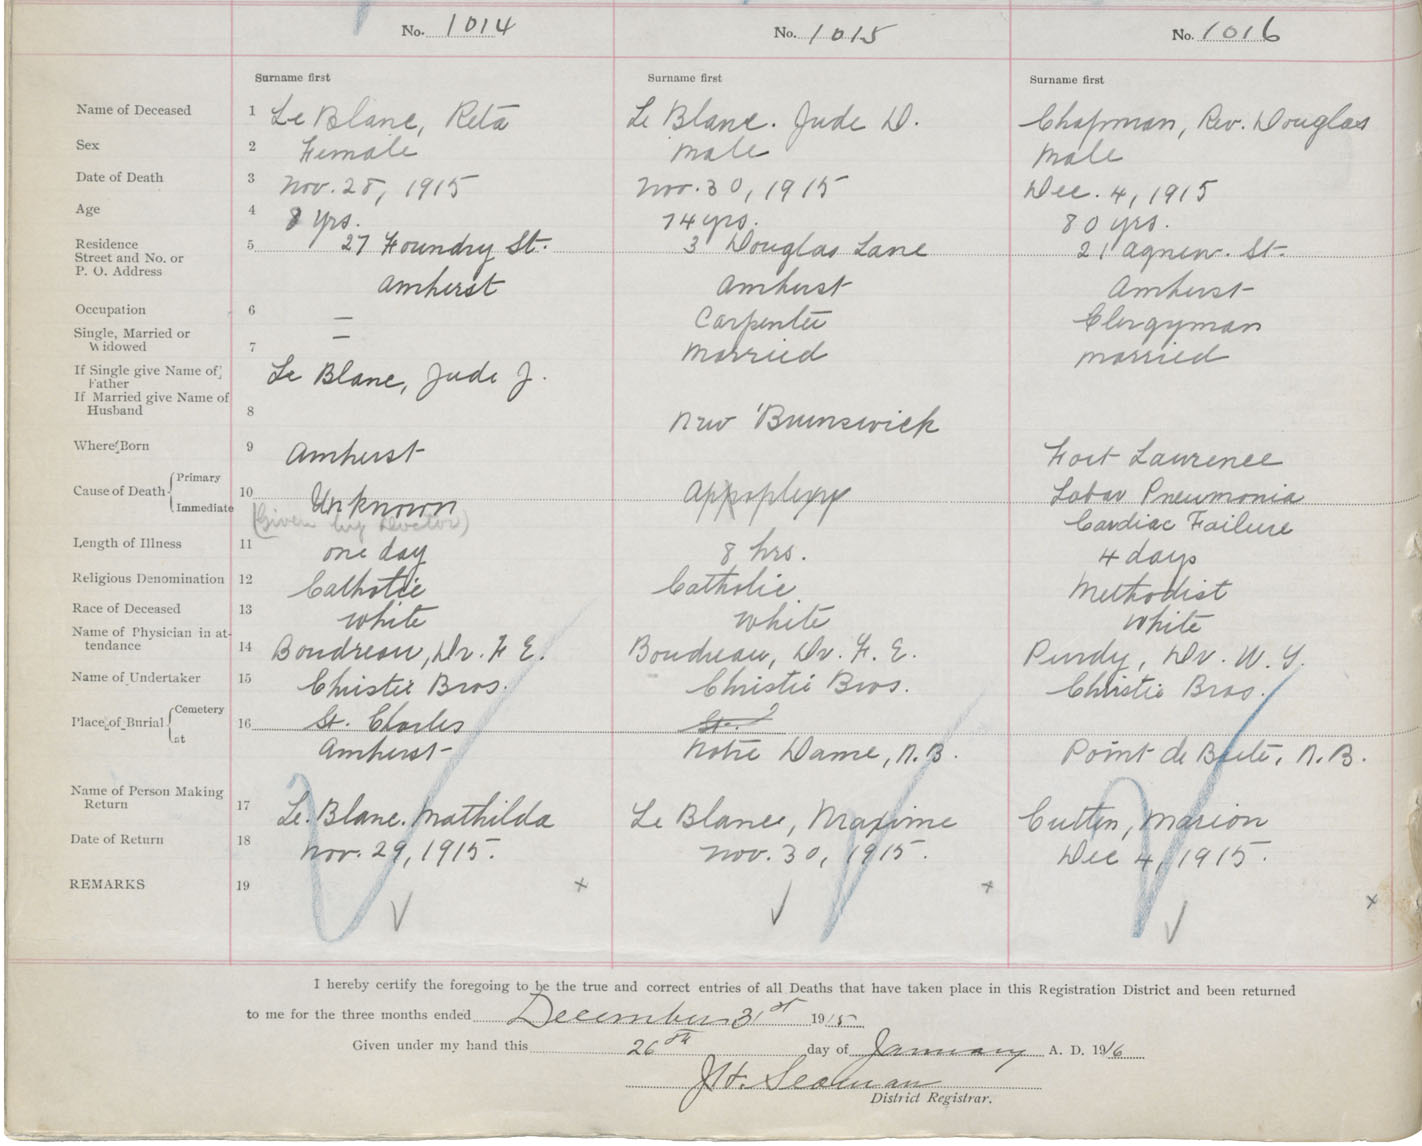 No. 1014 No. 1015 No. 1016
Surname first Surname first Surname first
Name of Deceased 1 Le Blanc, Reta Le Blanc. Jude D. Chapman, Rev. Douglas
Sex 2 Female Male Male
Date of Death 3 Nov. 28, 1915 Nov. 30, 1915 Dec. 4, 1915
Age 4 8 yrs. 74 yrs. 80 yrs.
Residence 5 27 Foundry St. 3 Douglas Lane 21 Agnew. St.
Street and No. or
P. O. Address Amherst Amherst Amherst
Occupation 6 — Carpenter Clergyman
Single, Married or
Widowed 7 — Married married
If Single give Name of
Father Le Blanc, Jude J.
If Married give Name of
Husband 8
New Brunswick
Where Born 9 Amherst Fort Lawrence
Cause of Death Primary
10 Unknown Appoplexy Lobar Pneumonia
Immediate (Given by Doctor) Cardiac Failure
Length of Illness 11 one day 8 hrs. 4 days
Religious Denomination 12 Catholic Catholic Methodist
Race of Deceased 13 white white white
Name of Physician in at-
tendance 14 Boudreau, Dr. F E. Boudreau, Dr. F. E. Purdy, Dr. W. Y.
Name of Undertaker 15 Christie Bros. Christie Bros. Christie Bros.
Place of Burial Cemetery
16 St. Charles St.
at Amherst Notre Dame, N.B. Point de Bute, N.B.
Name of Person Making
Return 17 Le. Blanc. Mathilda Le Blanc, Maxime Cutten, Marion
Date of Return 18 Nov. 29, 1915. Nov. 30, 1915. Dec 4, 1915.
REMARKS 19 x x x
I hereby certify the foregoing to be the true and correct entries of all Deaths that have taken place in this Registration District and been returned
to me for the three months ended December 31st 1915
Given under my hand this 26th day of January A. D. 1916
J H. Seaman
District Registrar.